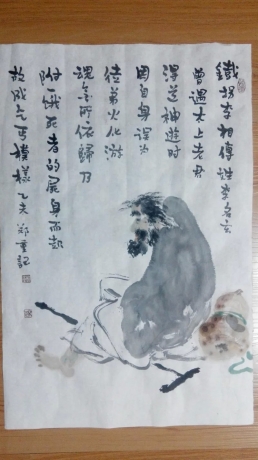 鐵拐李相傳姓李名玄
曾遇太上老君
得道神遊時
因自身误为
徒弟火化游
魂無所依歸乃
附一饿死者的屍身而起
故成乞丐模樣乙未郑重記